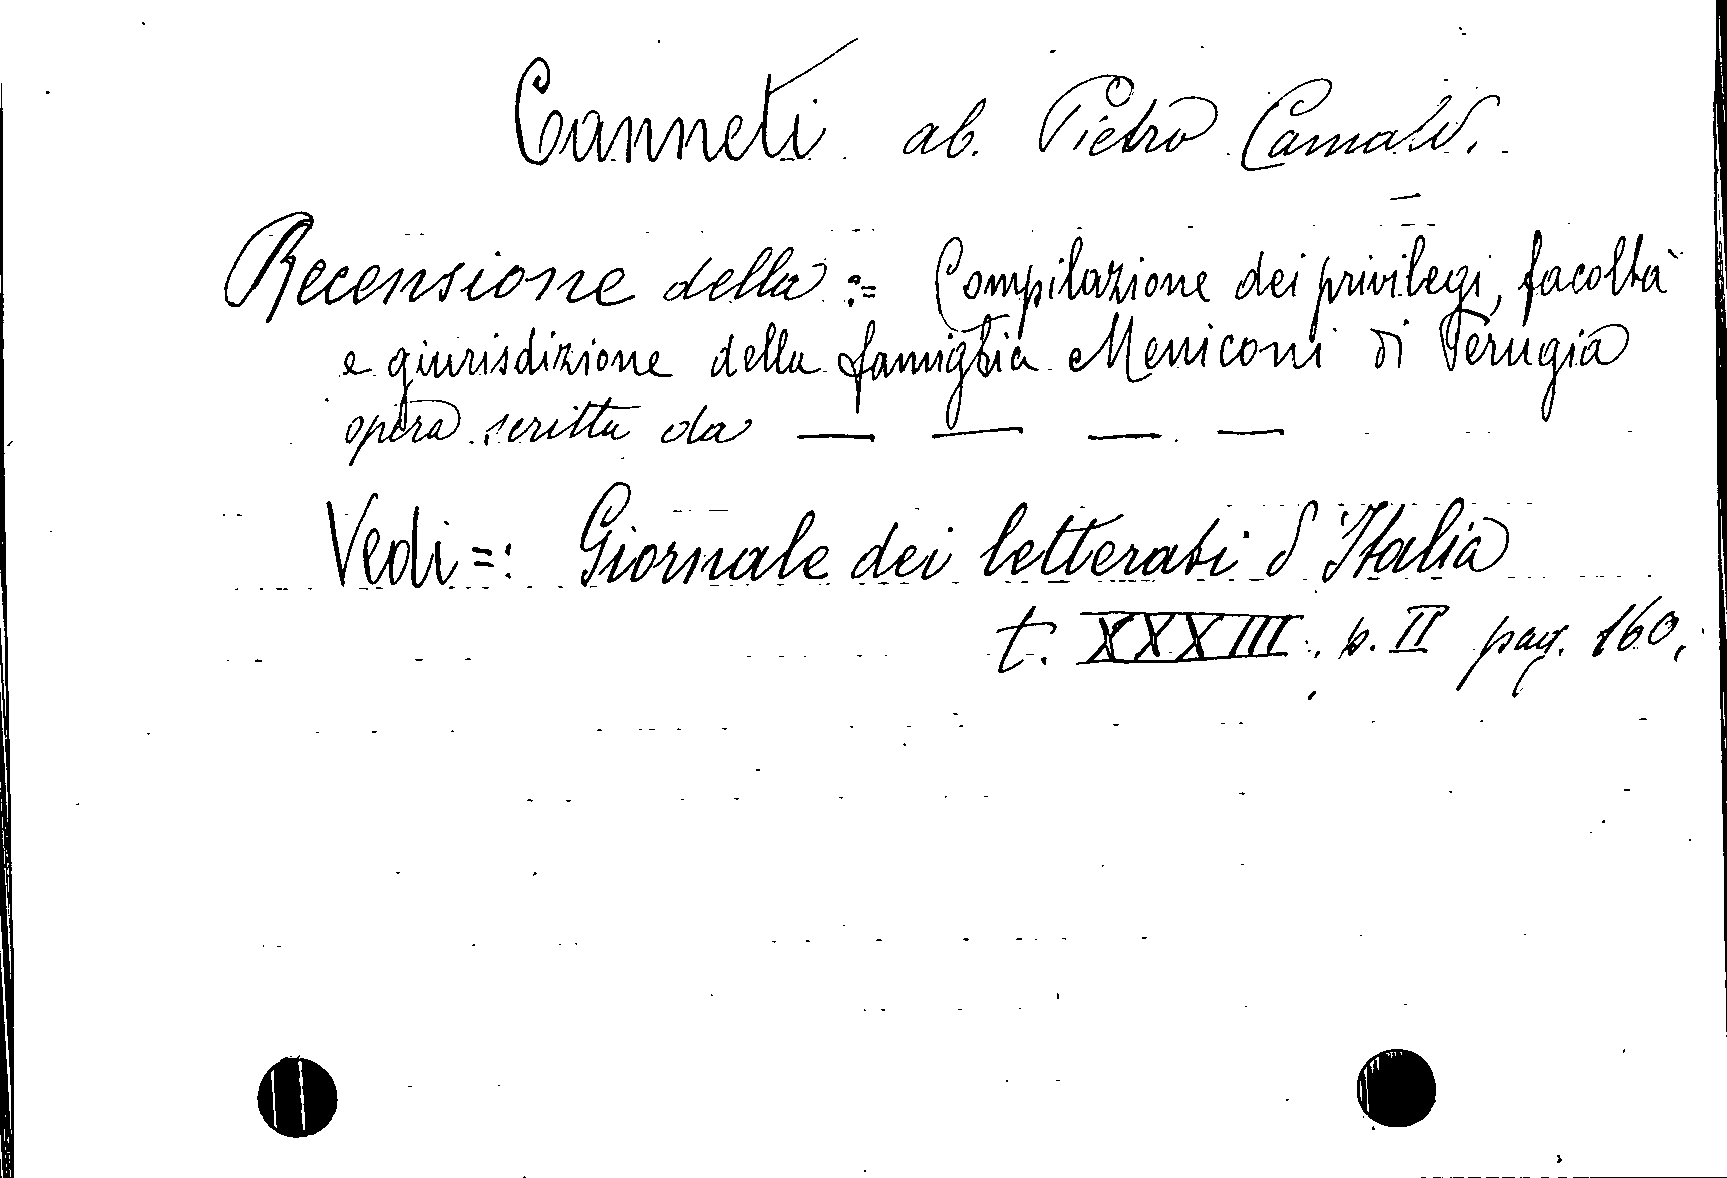 Canneti ab. Pietro Camald.
Recensione della := Compilazione dei privilegi, facoltà
e giurisdizione della famiglia Meniconi di Perugia
opera scritta da — — — —
Vedi =: Giornale dei letterati d'Italia
t. XXXIII. p. II pag. 160.